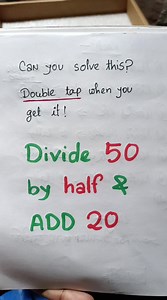 Can you solve this?
Double tap when you
get it!
Divide 50
by half &
ADD 20